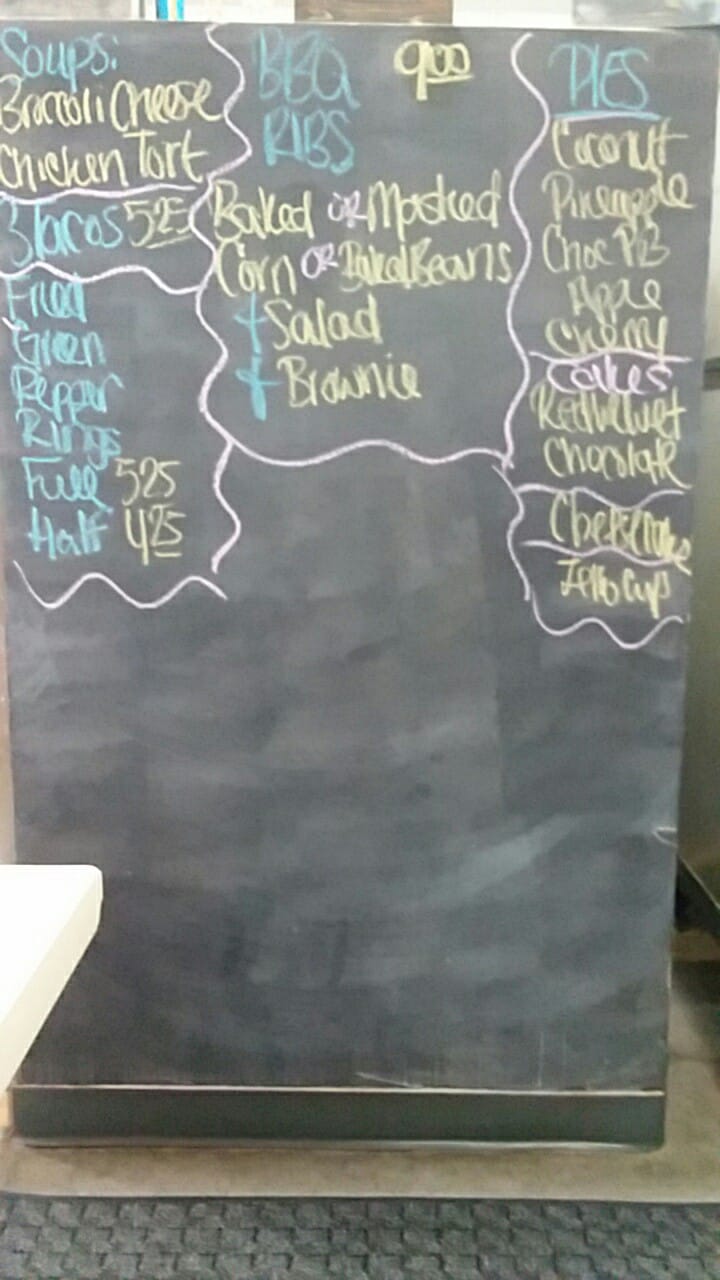 Soups:
Broccoli Cheese
Chicken Tort
3 Tacos 525
Fried
Green
Pepper
Rings
Full 525
Half 425
BBQ 900
RIBS
Baked OR Mashed
Corn OR Baked Beans
+ Salad
+ Brownie
PIES
Coconut
Pineapple
Choc PB
Apple
Cherry
Cakes
Red Velvet
Chocolate
Cheesecake
Jello Cup